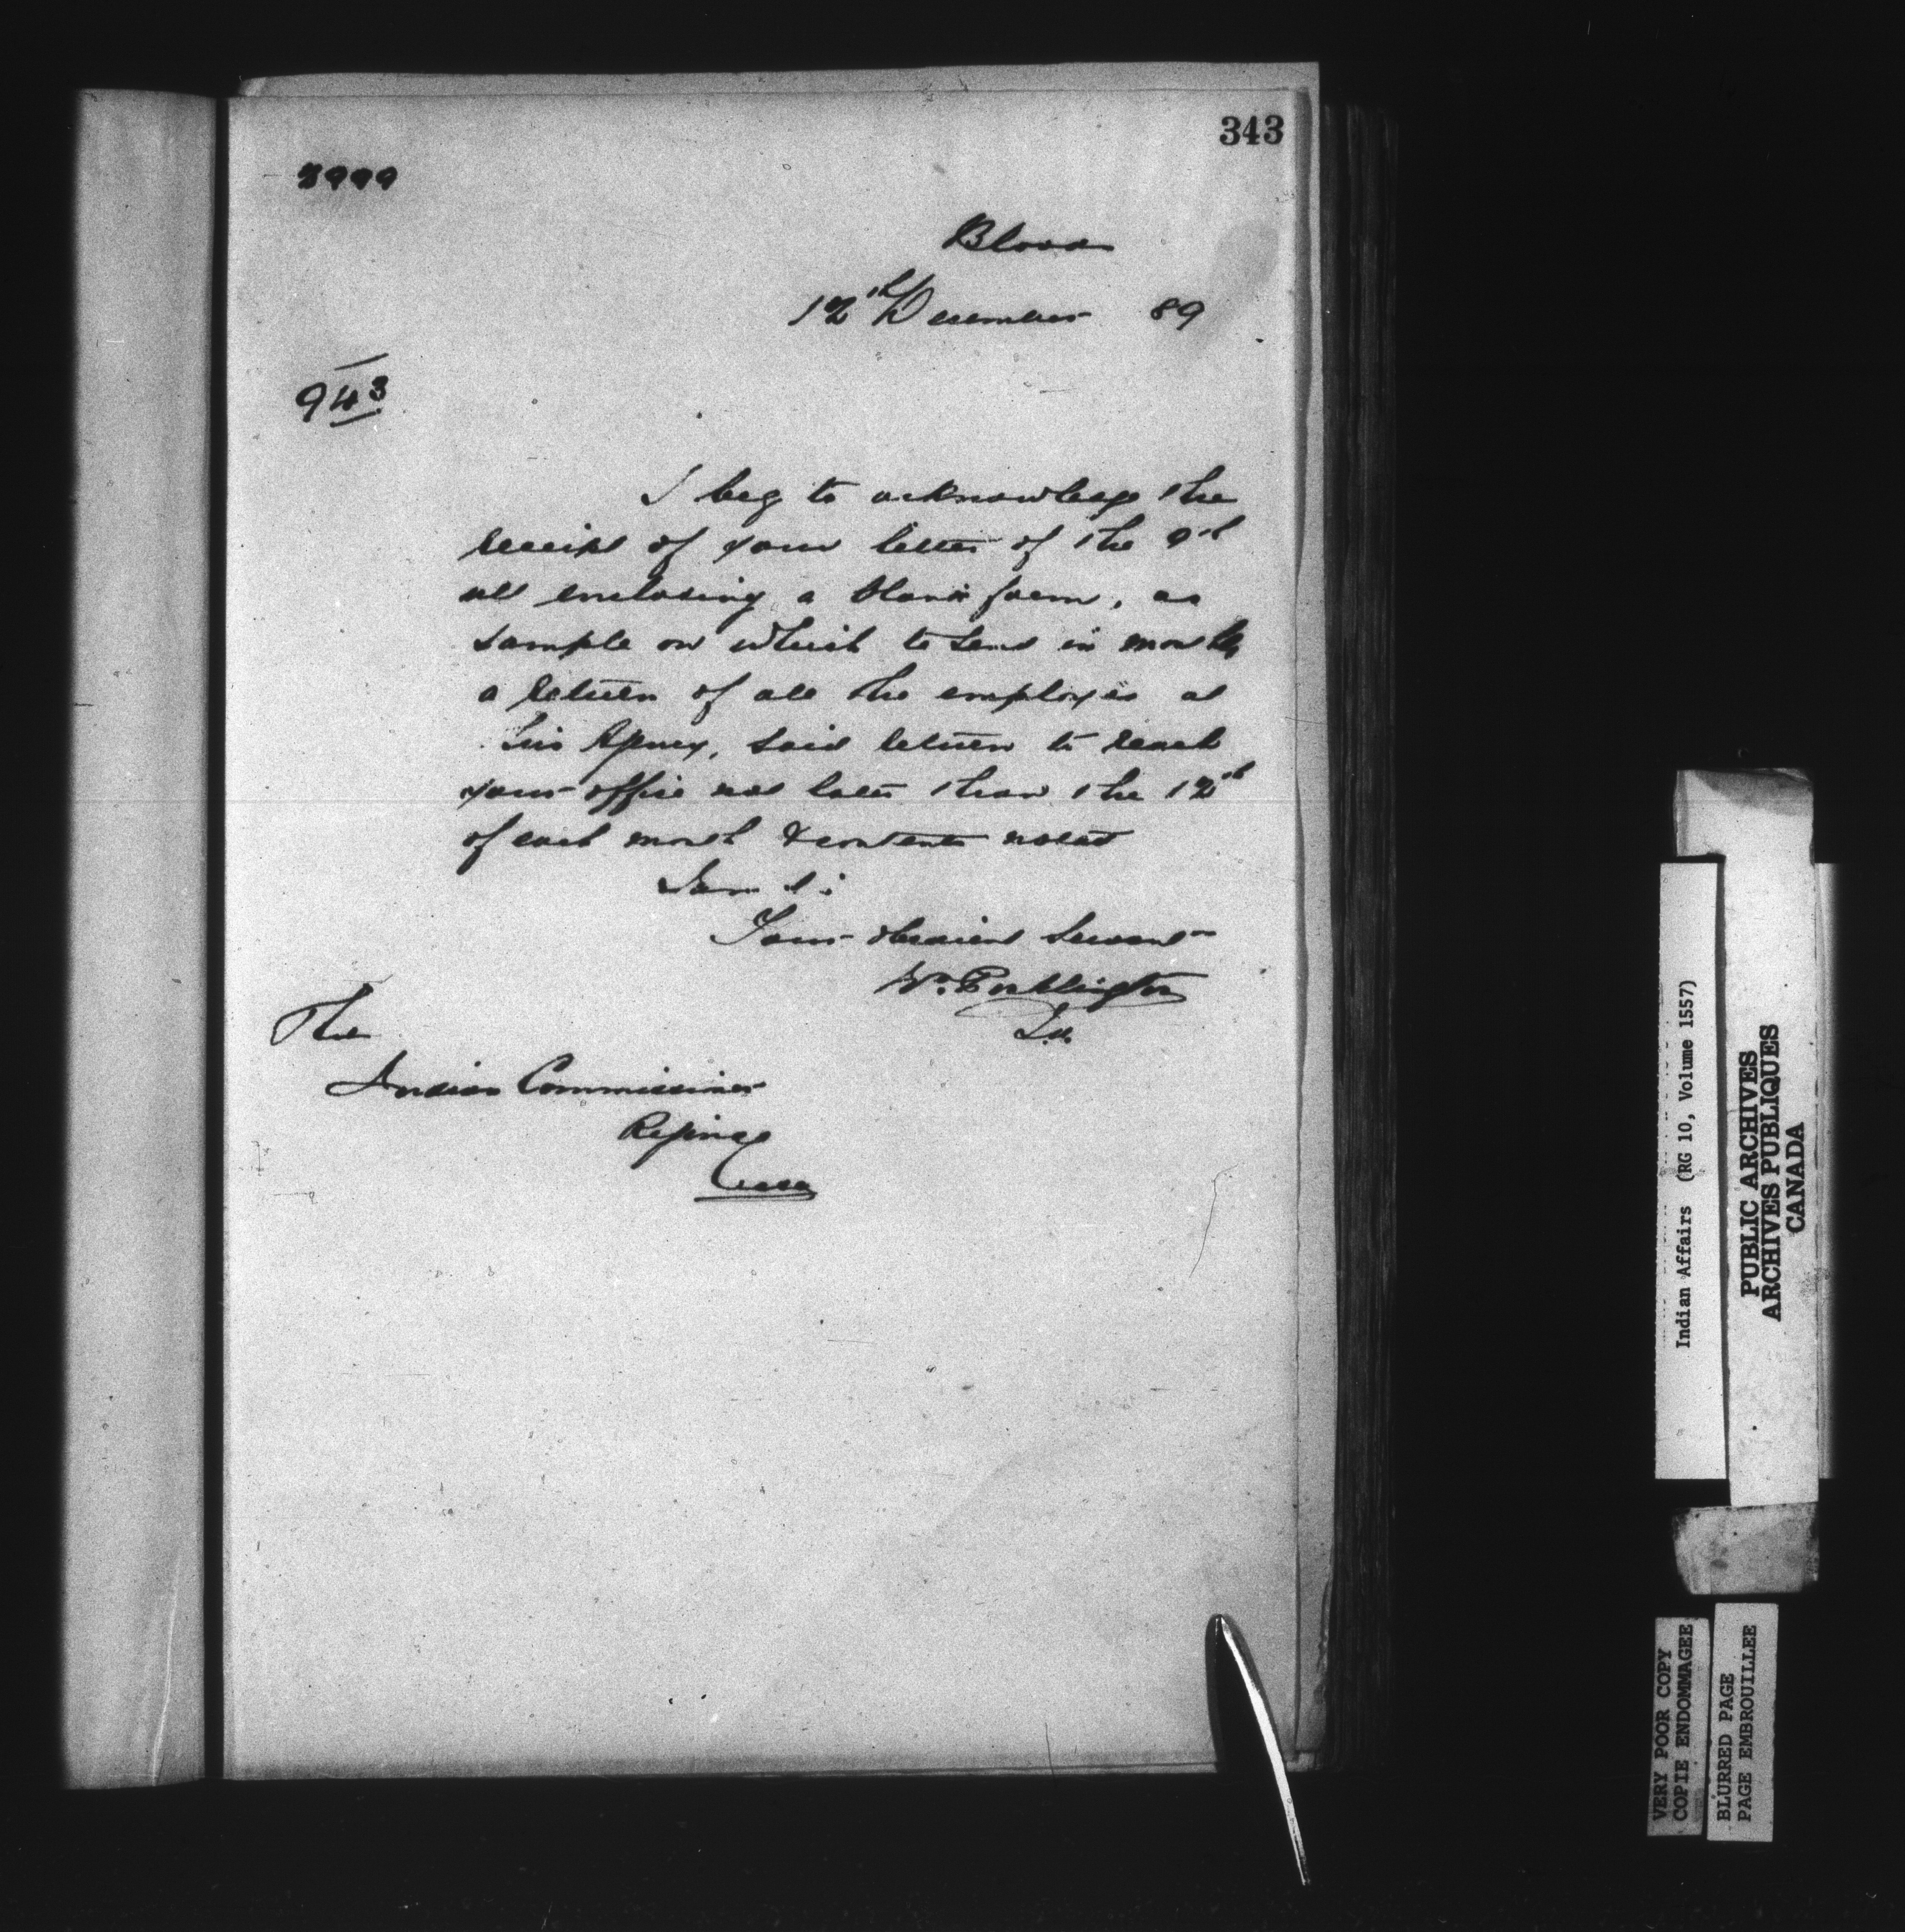 343
Blood
12th December 89
943
I beg to acknowledge the
receipt of your letter of the 9th
ult enclosing a blank form, as
sample on which to send in monthly
a return of all the employes at
this Agency, said return to reach
your office not later than the 12th
of each month & contents noted
I am Sir
Your obedient Servant
Wm. Pocklington
I.A.
The
Indian Commissioner
Regina
Assa
Indian Affairs (RG 10, Volume 1557)
PUBLIC ARCHIVES
ARCHIVES PUBLIQUES
CANADA
VERY POOR COPY
COPIE ENDOMMAGEE
BLURRED PAGE
PAGE EMBROUILLEE